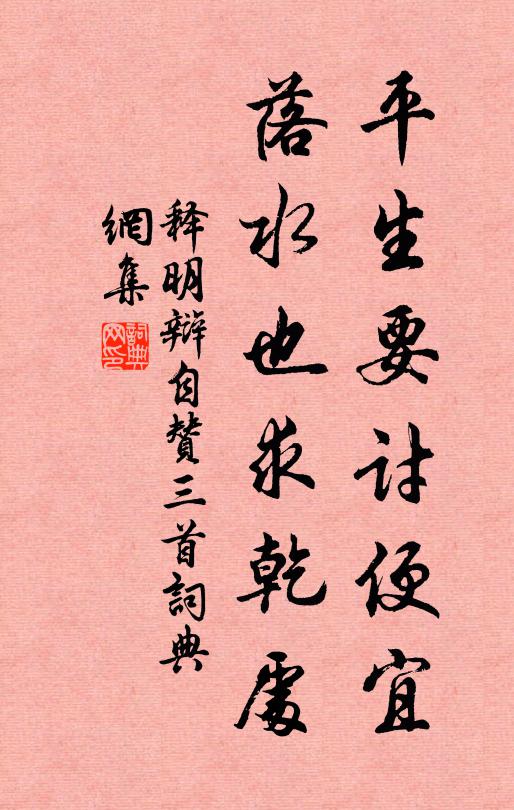 平生要討便宜
落水也求乾處
释明辯自贊三首詞典
網集
詞典
网印